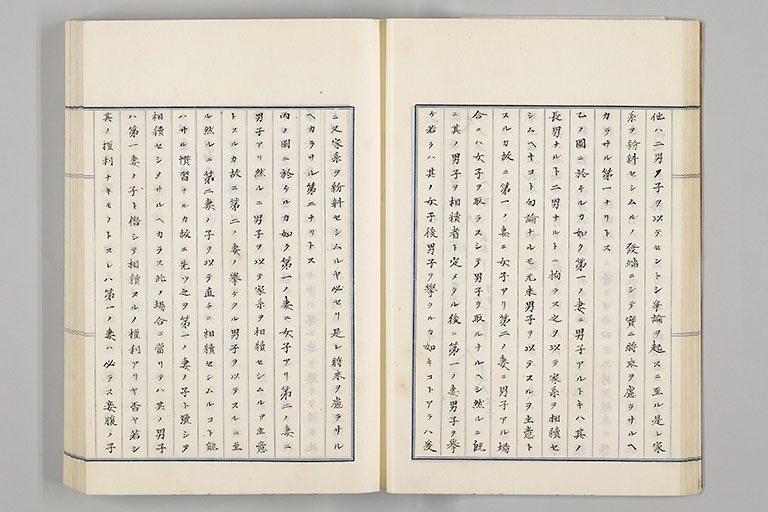 他ハ二男ノ子ヲ以テセントシ爭論ヲ起スニ至ル是レ家
系ヲ紛糾セシムルノ發端ニシテ實ニ將來ヲ慮ラサルヘ
カラサル第一ナリトス
乙ノ圖ニ於ケルカ如ク第一ノ妻ニ男子アルトキハ其ノ
長男ナルト二男ナルトニ拘ラス之ヲ以テ家系ヲ相續セ
シムヘキコト勿論ナルモ元來男子ヲ以テスルヲ主意ト
スルカ故ニ第一ノ妻ニ女子アリ第二ノ妻ニ男子アル場
合ニハ女子ヲ取ラスシテ男子ヲ取ルナルヘシ然ルニ既
ニ其ノ男子ヲ相續者ト定メタル後ニ第一ノ妻男子ヲ擧
ケ若クハ其ノ女子後男子ヲ擧クルカ如キコトアラハ爰
ニ又家系ヲ紛糾セシムルヤ必セリ是レ將來ヲ慮ラサル
ヘカラサル第二ナリトス
丙ノ圖ニ於ケルカ如ク第一ノ妻ニ女子アリ第二ノ妻ニ
男子アリ然ルニ男子ヲ以テ家系ヲ相續セシムルヲ主意
トスルカ故ニ第二ノ妻ノ擧ケタル男子ヲ以テスルニ至
ル然ルニ第二妻ノ子ヲ以テ直ニ相續セシムルコト能
ハサル慣習ナルカ故ニ先ツ之ヲ第一ノ妻ノ子ト號シテ
相續セシメサルヘカラス此ノ場合ニ當リテハ其ノ男子
ハ第一妻ノ子ト偕シテ相續スルノ權利アリヤ否ヤ若シ
其ノ權利ナキモノトスレハ第一ノ妻ハ必ラス妾腹ノ子